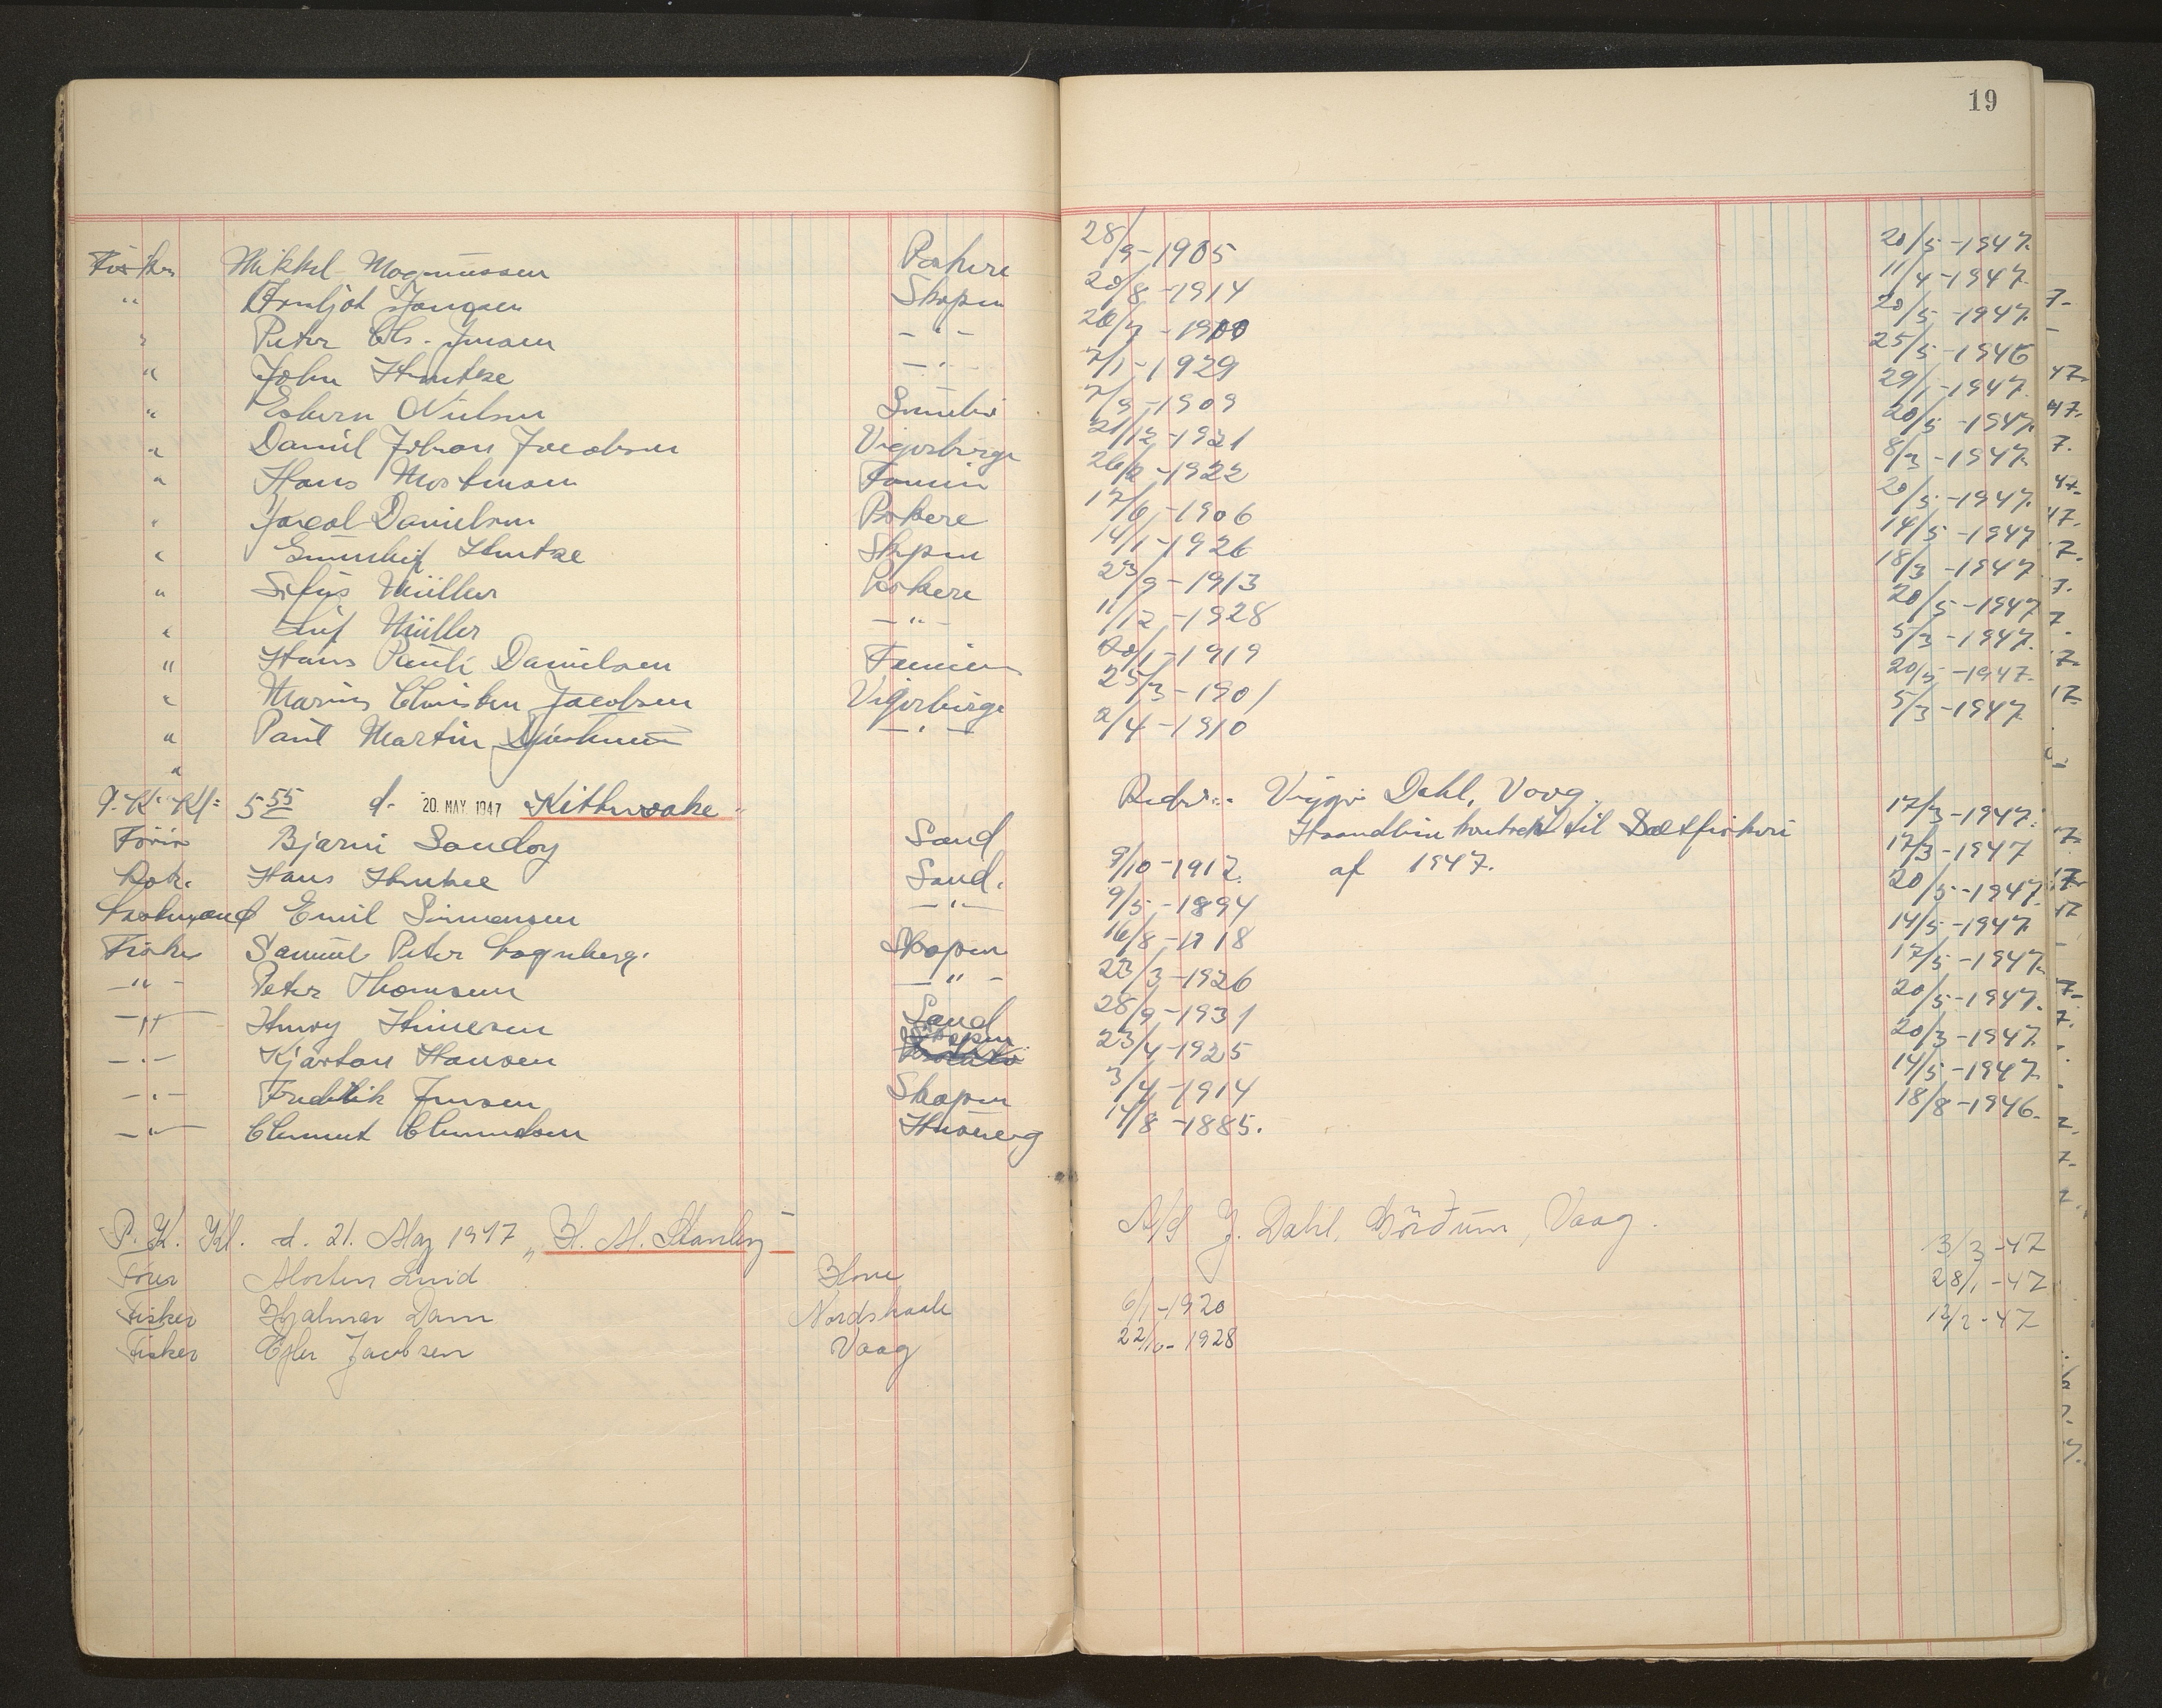 19
Fisker Mikkel Magnussen Porkere 28/9-1905 20/5-1947.
" Arnljot Joensen Skopun 20/8-1914 11/4-1947.
" Peter Chr. Jensen -"- 26/7-1900 20/5-1947.
" John Hentze -"- 7/1-1929 25/5-1946
" Esbern Nielsen Sumbø 7/9-1909 29/1-1947.
" Daniel Johan Jacobsen Vigerbirge 21/12-1921 20/5-1947.
" Hans Mortensen Famien 26/2-1922 8/3-1947.
" Jacob Danielsen Porkere 17/6-1906 20/5-1947.
" Gunnleif Hentze Skopun 14/1-1926 14/5-1947
" Sifus Müller Porkere 23/9-1913 18/3-1947
" Leif Müller -"- 11/12-1928 20/5-1947
" Hans Pauli Danielsen Famien 20/1-1919 5/3-1947.
" Marius Christen Jacobsen Vigerbirge 25/3-1901 20/5-1947.
" Paul Martin 2/4-1910 5/3-1947
"
P.K. Kl: 5 55 d. 20. MAY 1947 "Kittiwake" Reder: Viggo Dahl, Vaag.
Fører Bjarni Sandoy Sand Haandlinekontrakt til Saltfiskeri 17/3-1947.
Bdt. Hans Hentze Sand. 9/10-1912. af 1947. 17/3-1947
Emil Simonsen -"- 9/5-1894 20/5-1947.
Fisker Samuel Peter Lognberg. Skopun 16/8-1918 14/5-1947
-"- Peter Thomsen -"- 23/3-1926 17/5-1947.
-"- Henry Heinesen Sand 28/9-1931 20/5-1947.
-"- Kjartan Hansen Skopun 23/4-1925 20/3-1947.
-"- Fredrik Jensen Skopun 3/4-1914 14/5-1947
-"- Clement Clementsen Husevig 14/8-1885. 18/8-1946.
P. K. Kl. d. 21. May 1947 "H. M. Stanley" A/S J. Dahl, Vaag.
Fører Morten Lund 3/3-47
Fisker Hjalmar Dam Nordskaale 6/1-1920 28/1-47
Fisker Ejler Jacobsen Vaag 22/10-1928 12/2-47